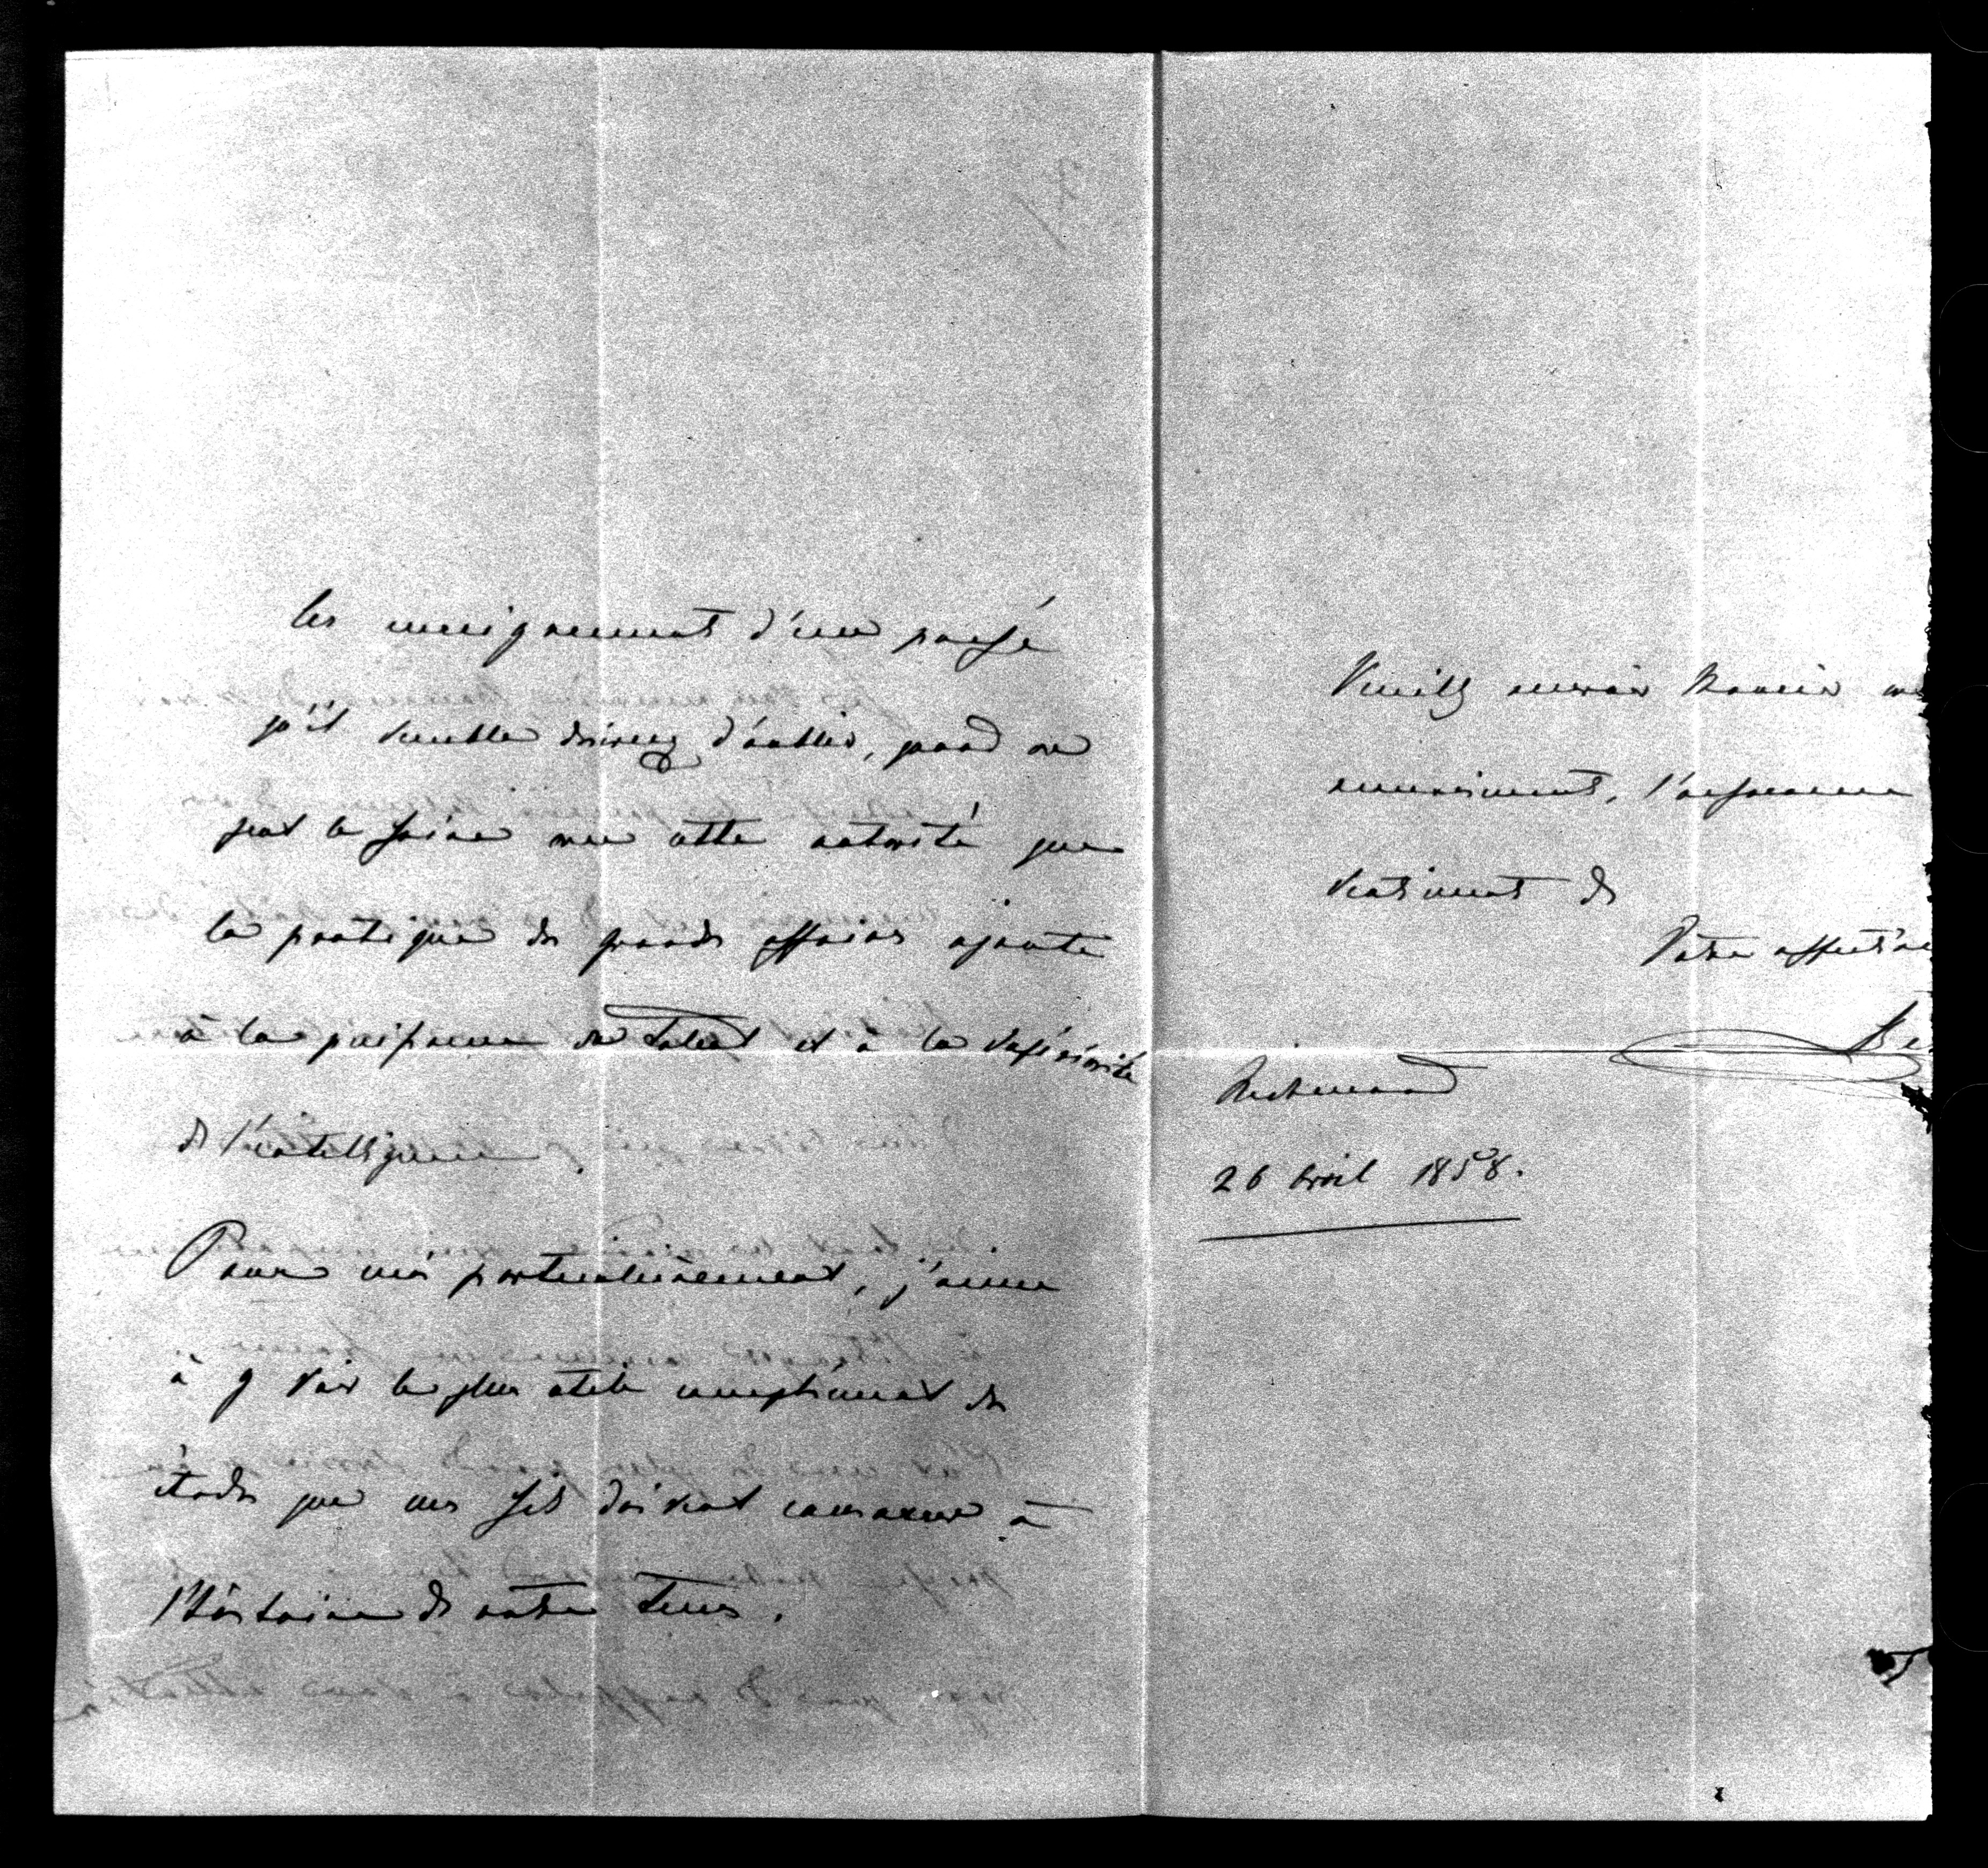 les enseignements d'un passé
qu'il semble désireux d'oublier, quand on
peut le faire avec cette autorité que
la pratique des grandes affaires ajoute
à la puissance du talent et à la supériorité
de l'intelligence.
Pour moi particulièrement, j'aime
à y voir le plus utile complément des
études que mes fils doivent consacrer à
l'histoire de notre tems.
Veuillez
, l'assurance
sentiments de
Votre affectionné
Richmond
26 avril 1858.